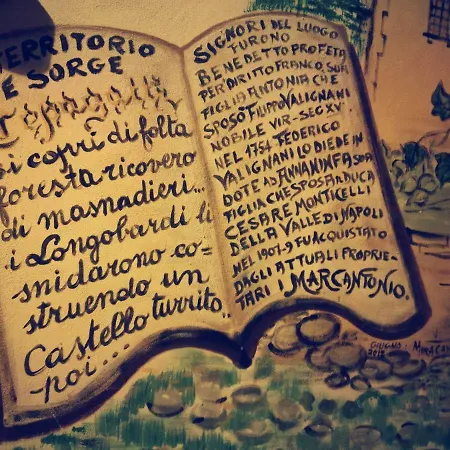 TERRITORIO
E SORGE
Cepagatti
si coprì di folta
foresta ricovero
di masnadieri...
i Longobardi li
snidarono co-
struendo un
Castello turrito..
poi...
SIGNORI DEL LUOGO
TURONO
BENEDETTO PROFETA,
PER DIRITTO FRANCO, SUA
FIGLIA ANTONIA CHE
SPOSÒ FILIPPO VALIGNANI
NOBILE VIR-SEC XV.
NEL 1754 FEDERICO
VALIGNANI LO DIEDE IN
DOTE AD ANNA NINFA SUA
FIGLIA CHE SPOSA DUCA
CESARE MONTICELLI
DELLA VALLE DI NAPOLI
NEL 1907-9 FU ACQUISTATO
DAGLI ATTUALI PROPRIE-
TARI I MARCANTONIO.
GIUGNO